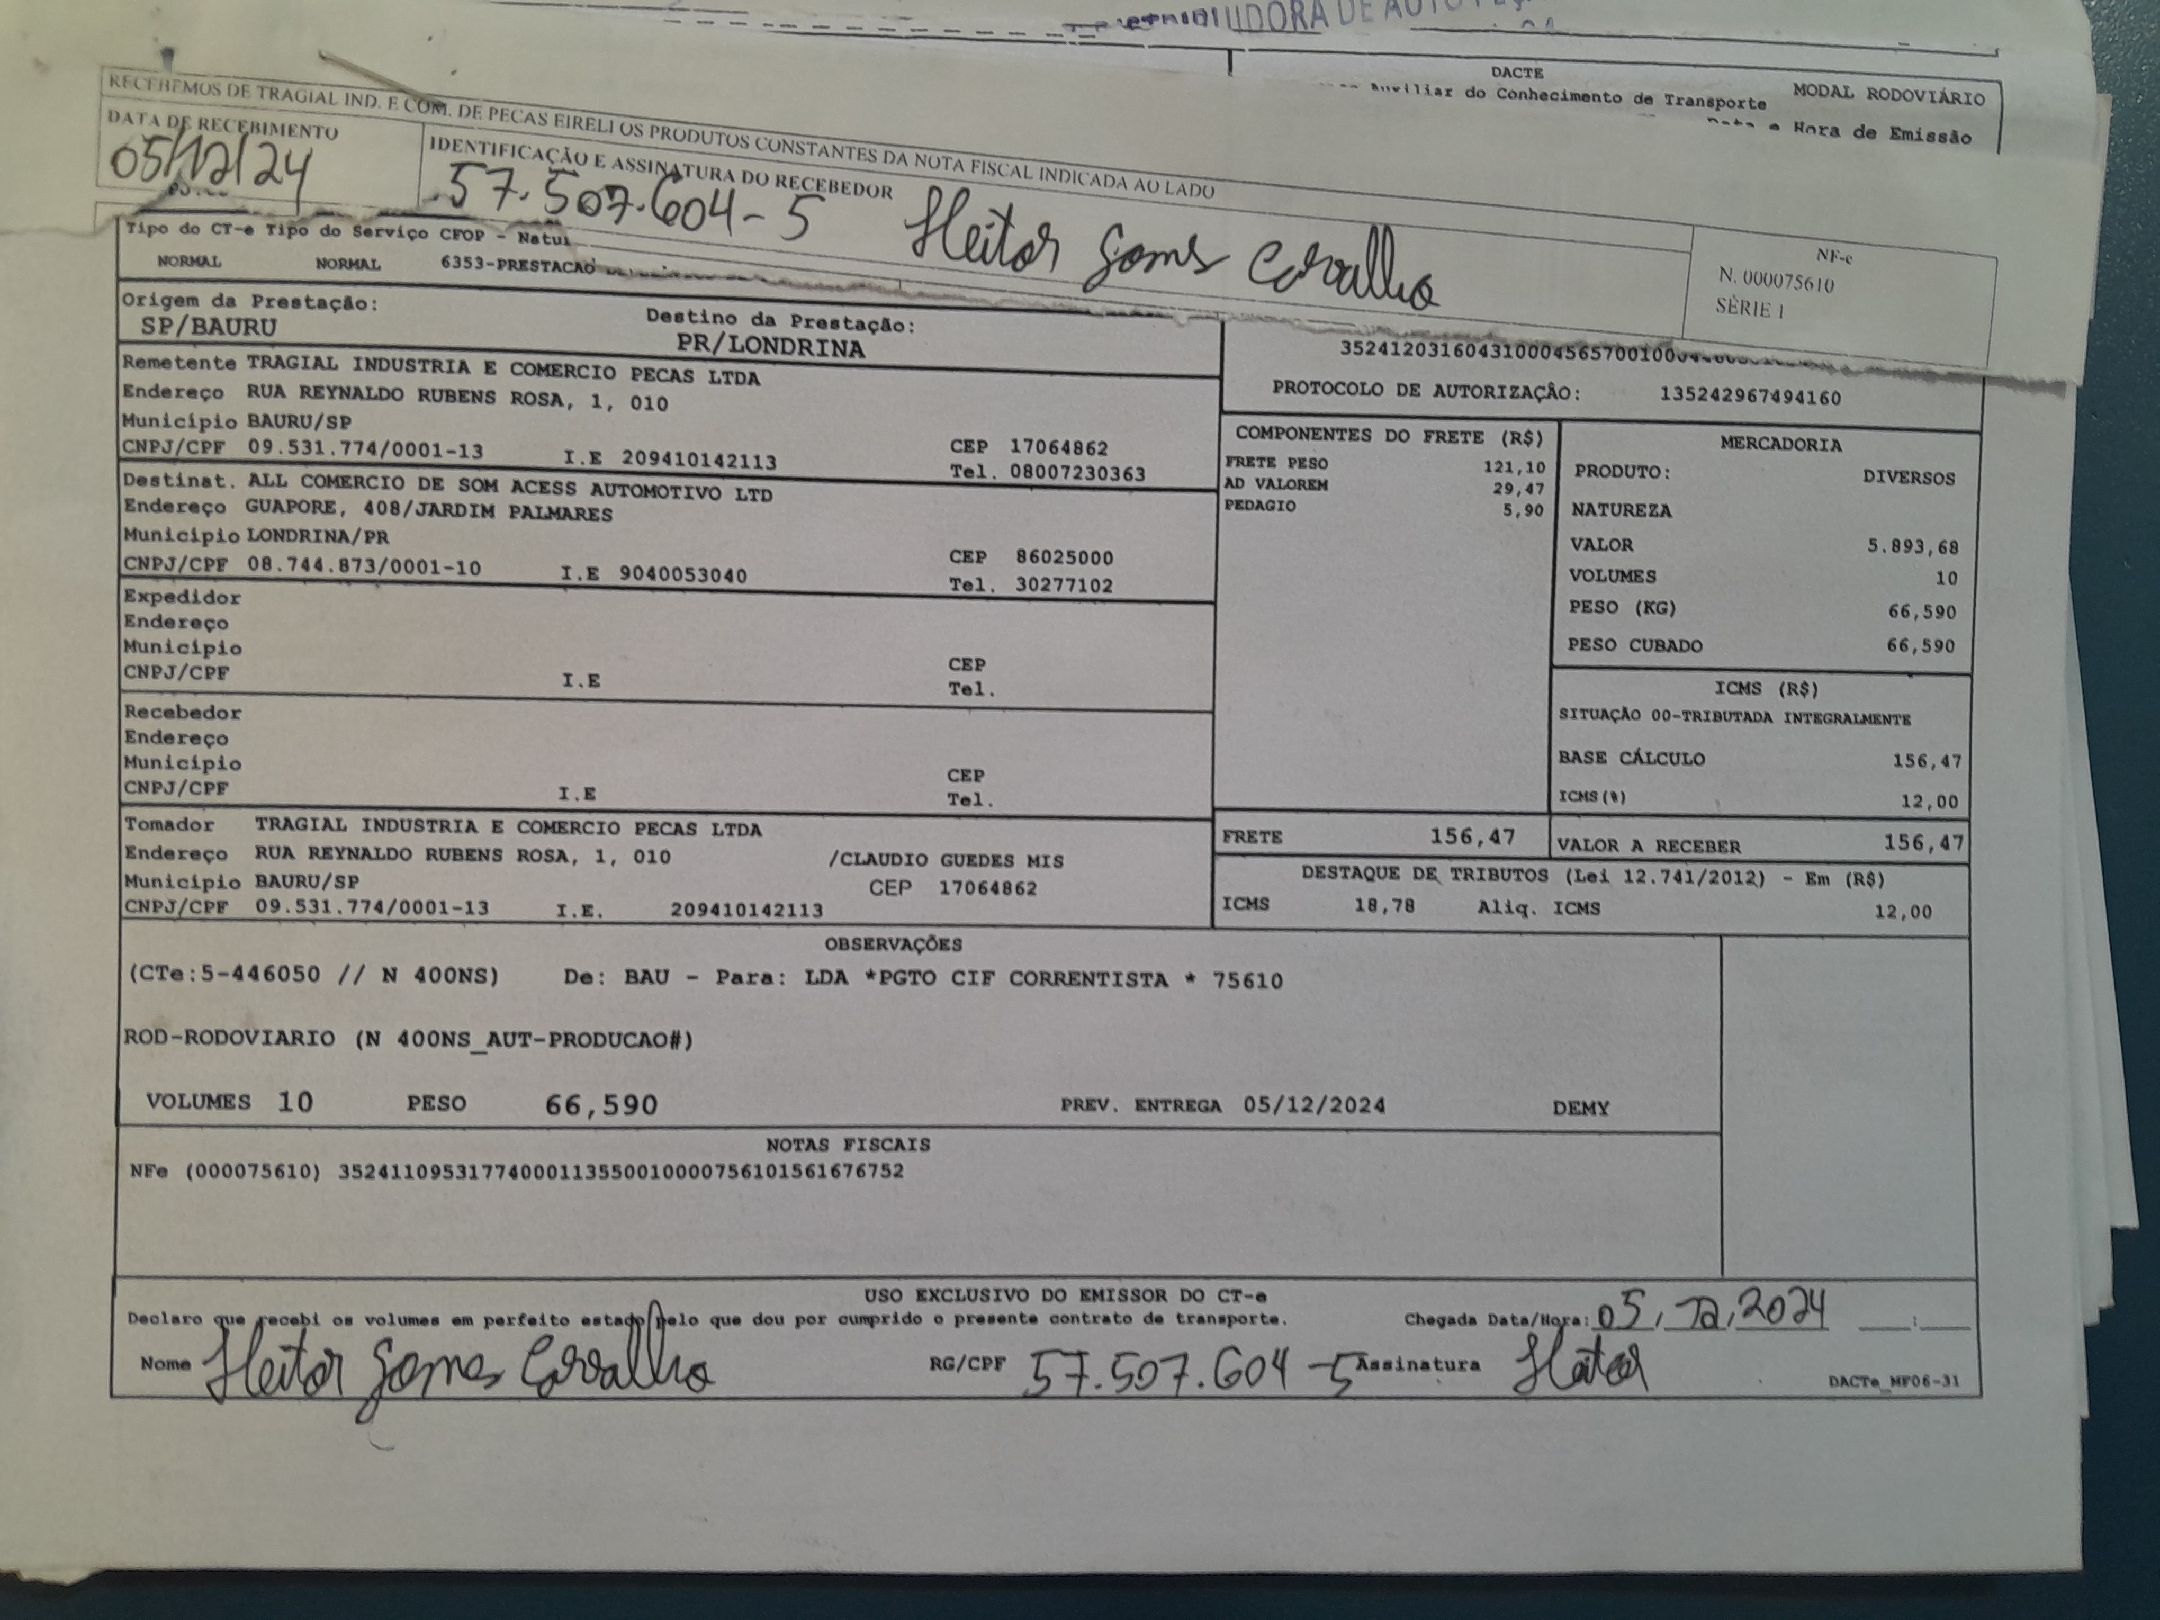 DACTE
Auxiliar do Conhecimento de Transporte
MODAL RODOVIÁRIO
e Hora de Emissão
RECEBEMOS DE TRAGIAL IND. E COM. DE PECAS EIRELI OS PRODUTOS CONSTANTES DA NOTA FISCAL INDICADA AO LADO
DATA DE RECEBIMENTO
05/12/24
IDENTIFICAÇÃO E ASSINATURA DO RECEBEDOR
57.507.604-5 Heitor Gomes Carvalho
NF-e
N. 000075610
SÉRIE 1
Tipo do CT-e Tipo do Serviço CFOP -
NORMAL NORMAL 6353-PRESTACAO
Origem da Prestação:
SP/BAURU
Destino da Prestação:
PR/LONDRINA
PROTOCOLO DE AUTORIZAÇÃO: 135242967494160
Remetente TRAGIAL INDUSTRIA E COMERCIO PECAS LTDA
Endereço RUA REYNALDO RUBENS ROSA, 1, 010
Município BAURU/SP
CNPJ/CPF 09.531.774/0001-13 I.E 209410142113
CEP 17064862
Tel. 08007230363
Destinat. ALL COMERCIO DE SOM ACESS AUTOMOTIVO LTD
Endereço GUAPORE, 408/JARDIM PALMARES
Município LONDRINA/PR
CNPJ/CPF 08.744.873/0001-10 I.E 9040053040
CEP 86025000
Tel. 30277102
Expedidor
Endereço
Município
CNPJ/CPF I.E
CEP
Tel.
Recebedor
Endereço
Município
CNPJ/CPF I.E
CEP
Tel.
Tomador TRAGIAL INDUSTRIA E COMERCIO PECAS LTDA
Endereço RUA REYNALDO RUBENS ROSA, 1, 010 /CLAUDIO GUEDES MIS
Município BAURU/SP CEP 17064862
CNPJ/CPF 09.531.774/0001-13 I.E. 209410142113
COMPONENTES DO FRETE (R$)
FRETE PESO 121,10
AD VALOREM 29,47
PEDAGIO 5,90
MERCADORIA
PRODUTO: DIVERSOS
NATUREZA
VALOR 5.893,68
VOLUMES 10
PESO (KG) 66,590
PESO CUBADO 66,590
ICMS (R$)
SITUAÇÃO 00-TRIBUTADA INTEGRALMENTE
BASE CÁLCULO 156,47
ICMS(%) 12,00
FRETE 156,47
VALOR A RECEBER 156,47
DESTAQUE DE TRIBUTOS (Lei 12.741/2012) - Em (R$)
ICMS 18,78 Aliq. ICMS 12,00
OBSERVAÇÕES
(CTe:5-446050 // N 400NS) De: BAU - Para: LDA *PGTO CIF CORRENTISTA * 75610
ROD-RODOVIARIO (N 400NS_AUT-PRODUCAO#)
VOLUMES 10 PESO 66,590 PREV. ENTREGA 05/12/2024 DEMY
NOTAS FISCAIS
NFe (000075610) 35241109531774000113550010000756101561676752
USO EXCLUSIVO DO EMISSOR DO CT-e
Declaro que recebi os volumes em perfeito estado pelo que dou por cumprido o presente contrato de transporte.
Chegada Data/Hora: 05/12/2024 __:__
Nome Heitor Gomes Carvalho RG/CPF 57.507.604-5 Assinatura Heitor
DACTe_MF06-31